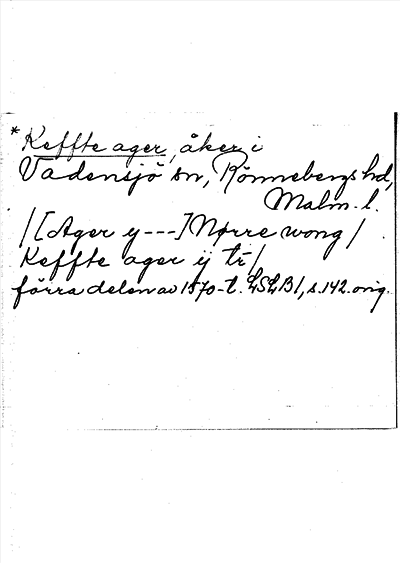 *Keffte ager, åker i
Vadensjö sn, Rönnebergs hd,
Malm. l.
/[Ager y---] Nørre wong/
Keffte ager ij tr̄/
förra delen av 1570-t. LSLB1, s.142. orig.